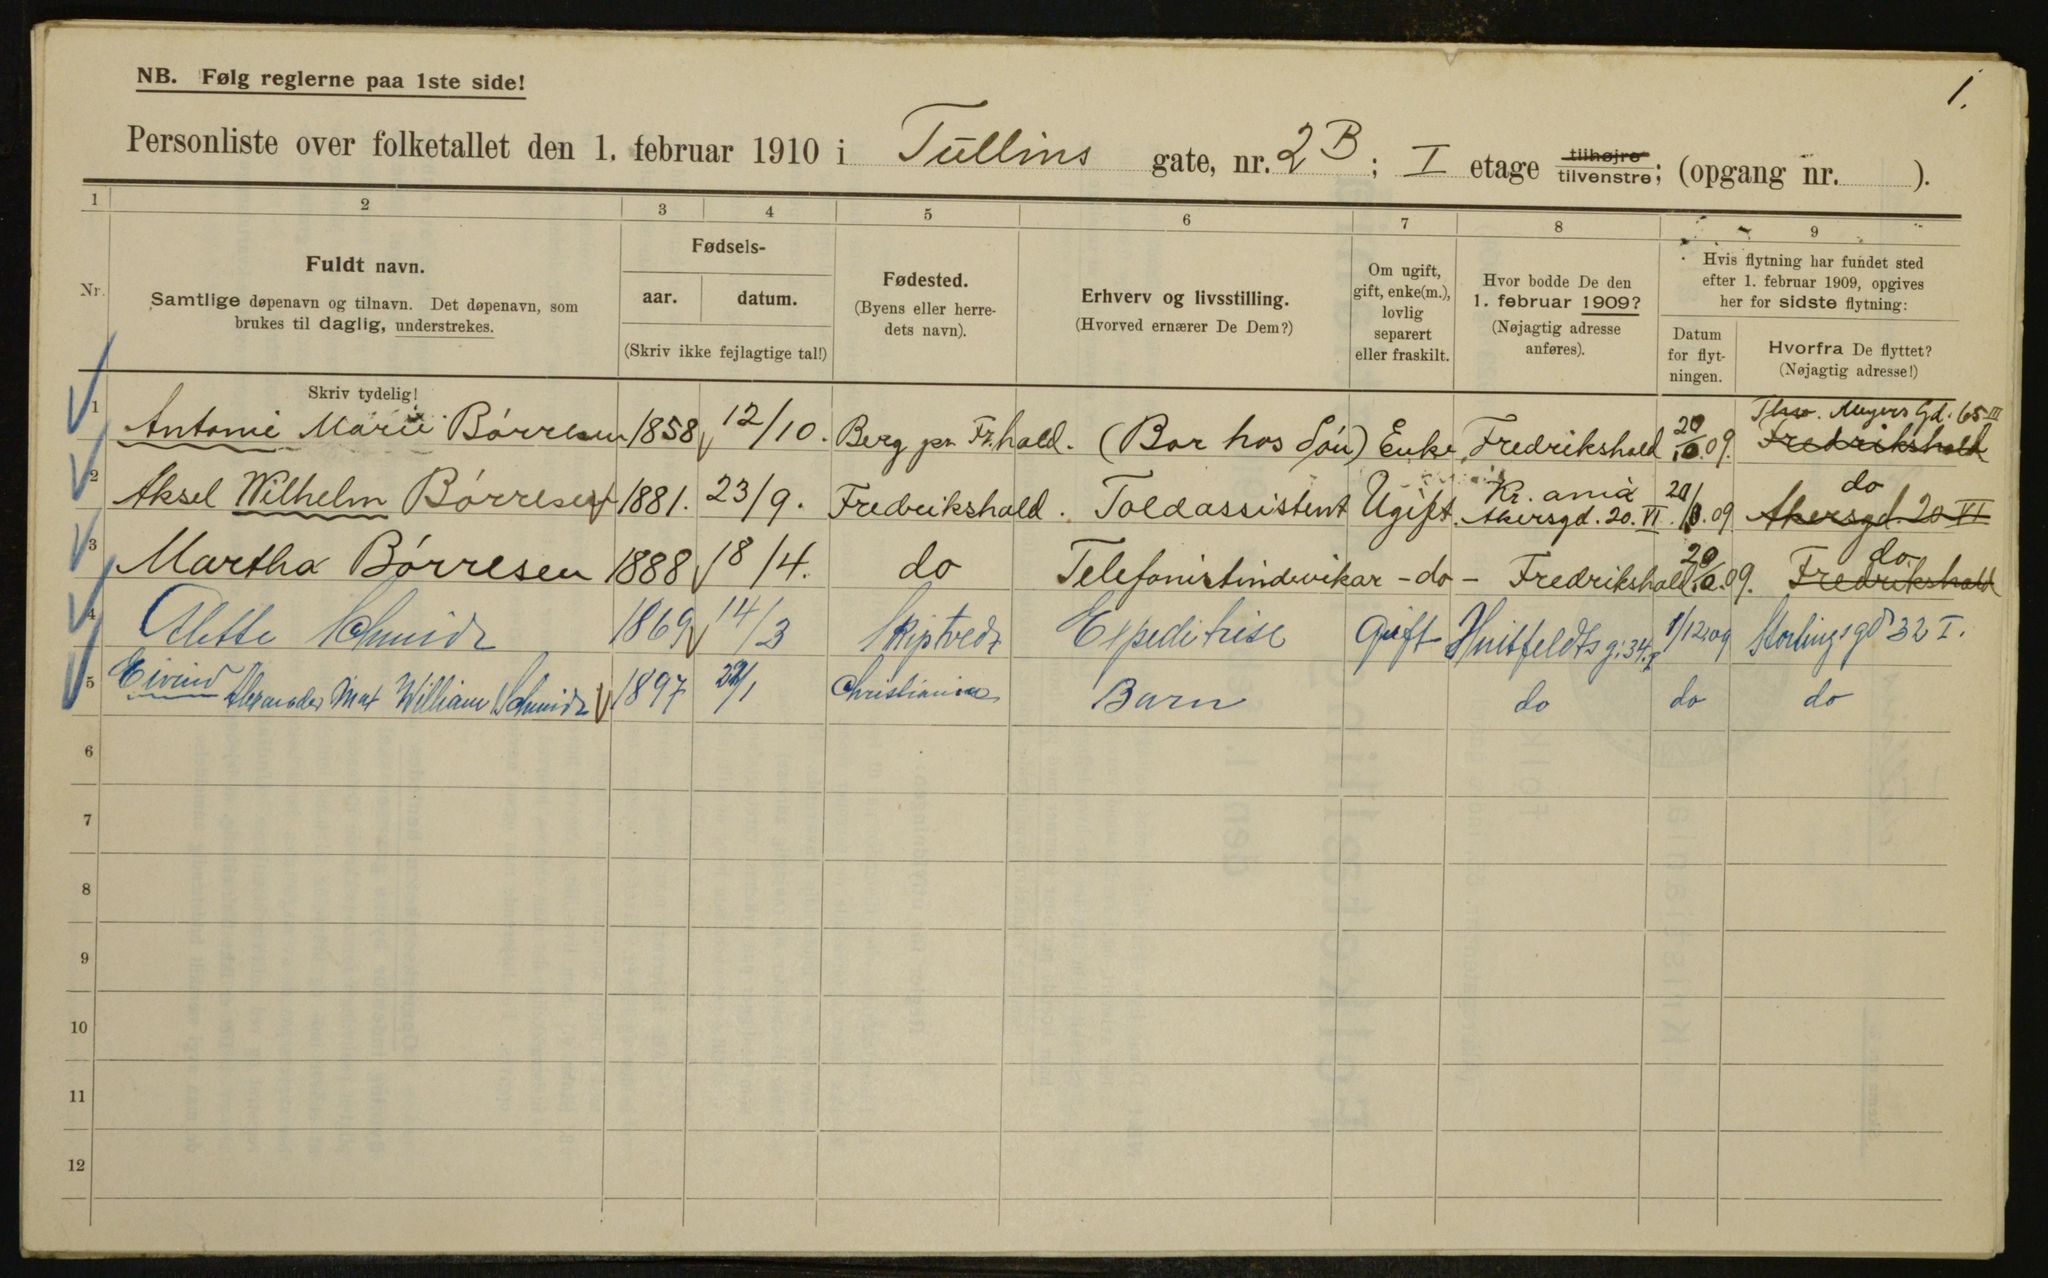 1.
NB. Følg reglerne paa 1ste side!
Personliste over folketallet den 1. februar 1910 i Tullins gate, nr. 2B; I etage tilhøjre tilvenstre; (opgang nr. ).
1 2 3 4 5 6 7 8 9
Nr.
Fuldt navn.
Samtlige døpenavn og tilnavn. Det døpenavn, som
brukes til daglig, understrekes.
Skriv tydelig!
Fødsels-
aar. datum.
(Skriv ikke fejlagtige tal!)
Fødested.
(Byens eller herre-
dets navn).
Erhverv og livsstilling.
(Hvorved ernærer De Dem?)
Om ugift,
gift, enke(m.),
lovlig
separert
eller fraskilt.
Hvor bodde De den
1. februar 1909?
(Nøjagtig adresse
anføres).
Hvis flytning har fundet sted
efter 1. februar 1909, opgives
her for sidste flytning:
Datum
for flyt-
ningen.
Hvorfra De flyttet?
(Nøjagtig adresse!)
Thv. Meyers Gd. 65 III
1 Antonie Marie Børresen 1858 12/10. Berg pr Fr.hald. (Bor hos Søn) Enke Fredrikshald 20/10.09. Fredrikshald
2 Aksel Wilhelm Børresen 1881. 23/9. Fredrikshald. Toldassistent Ugift. Kr.ania Akersgd. 20. VI. 20/10.09 do Akersgd. 20 VI
3 Martha Børresen 1888 18/4. do Telefonistindevikar - do - Fredrikshald 20/10.09. do. Fredrikshald
4 Alette Schmidt 1869 14/3 Skiptvedt Expeditrise Gift Huitfeldts g. 34. I 1/12 09 Stortingsgd 32 I.
5 Eivind Alexander Max William Schmidt 1897 22/1 Christiania Barn do do do
6
7
8
9
10
11
12